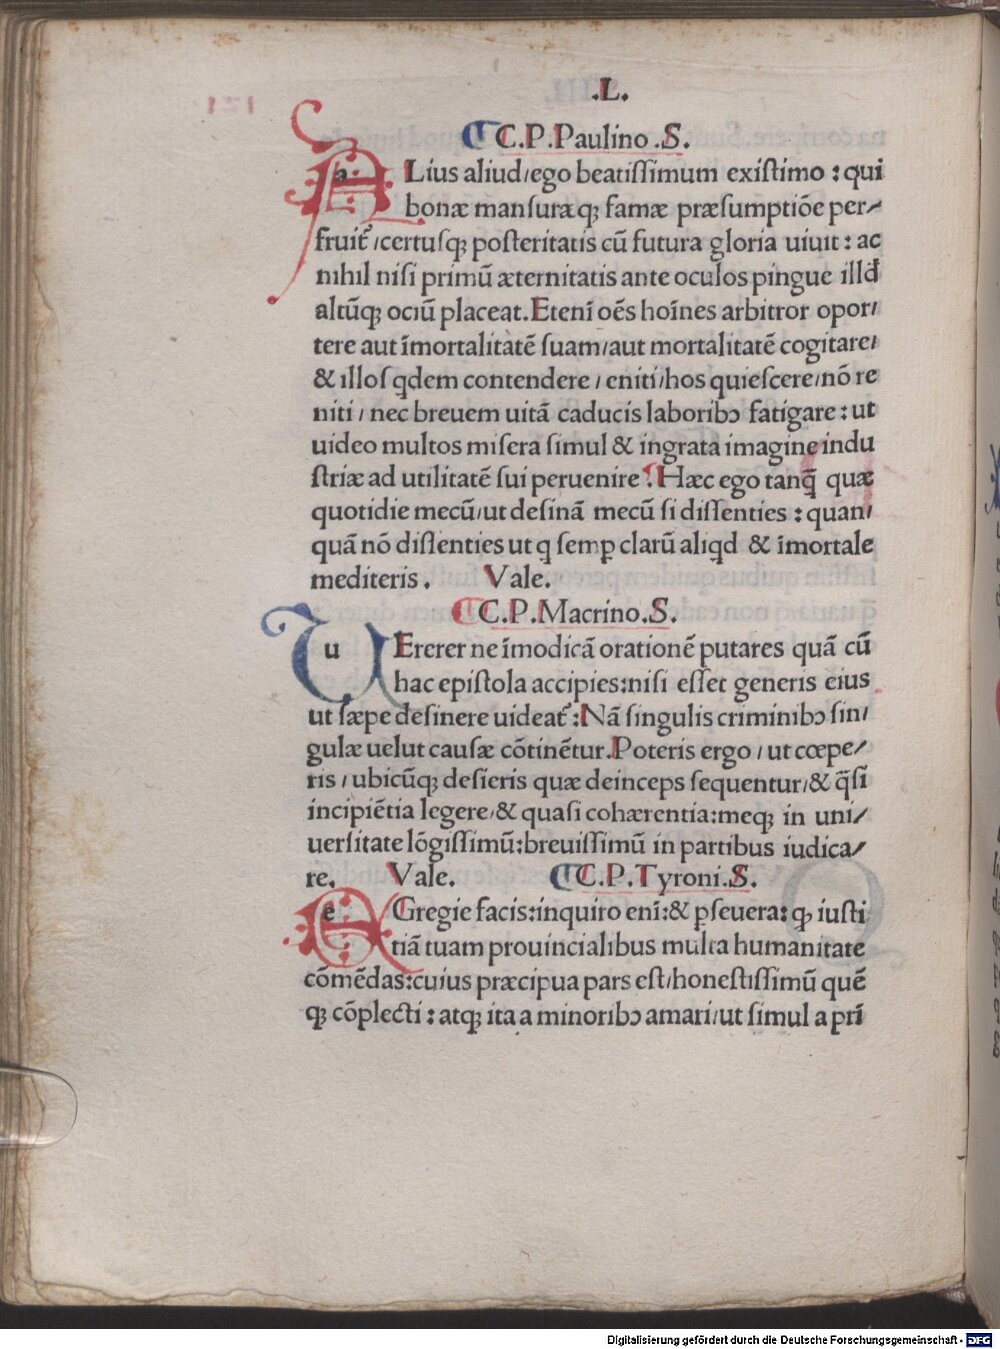 .L.
C.P.Paulino.S.
ALius aliud/ego beatissimum existimo: qui
bonæ mansuræq; famæ præsumptiōe per/
fruit᷑/certusq; posteritatis cū futura gloria uiuit: ac
nihil nisi primū æternitatis ante oculos pingue illd̄
altūq; ociū placeat.Etenī oēs hoīnes arbitror opor/
tere aut īmortalitatē suam/aut mortalitatē cogitare/
& illos qdem contendere/eniti/hos quiescere/nō re
niti/nec breuem uitā caducis laboribɔ fatigare: ut
uideo multos misera simul & ingrata imagine indu
striæ ad utilitatē sui peruenire. Hæc ego tanq̄ quæ
quotidie mecū/ut desinā mecū si dissenties: quan/
quā nō dissenties ut q semꝑ clarū aliqd & īmortale
mediteris. Vale.
C.P.Macrino.S.
uErerer ne īmodicā orationē putares quā cū
hac epistola accipies:nisi esset generis eius
ut sæpe desinere uideat᷑:Nā singulis criminibɔ sin/
gulæ uelut causæ cōtinētur.Poteris ergo/ut cœpe/
ris/ubicūq; desieris quæ deinceps sequentur/& q̄si
incipiētia legere/& quasi cohærentia:meq; in uni/
uersitate lōgissimū:breuissimū in partibus iudica/
re. Vale. C.P.Tyroni.S.
eGregie facis:inquiro enī:& ꝑseuera: q; iusti
tiā tuam prouincialibus multa humanitate
cōmēdas:cuius præcipua pars est/honestissimū quē
q; cōplecti: atq; ita a minoribɔ amari/ut simul a prī
Digitalisierung gefördert durch die Deutsche Forschungsgemeinschaft - DFG